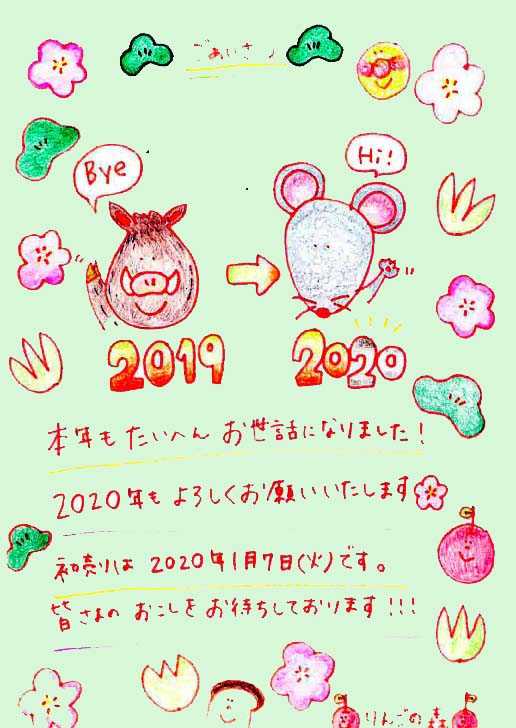 ごあいさつ
Bye
Hi!
2019
2020
本年もたいへんお世話になりました!
2020年もよろしくお願いいたします
初売りは2020年1月7日(火)です。
皆さまのおこしをお待ちしております!!!
りんごの森